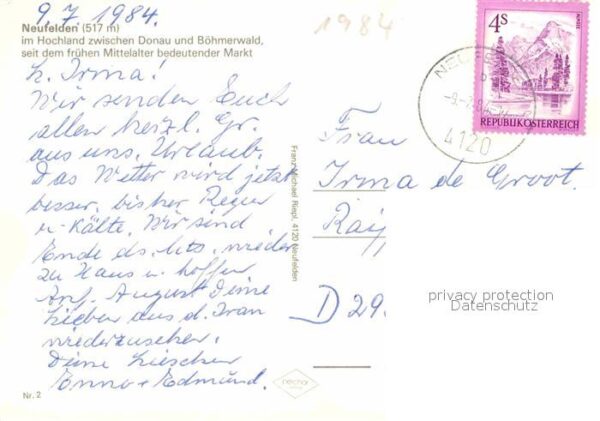 9.7.1984.
Neufelden (517 m)
im Hochland zwischen Donau und Böhmerwald,
seit dem frühen Mittelalter bedeutender Markt
L. Irma!
Wir senden Euch
allen herzl. Gr.
aus uns. Urlaub.
Das Wetter wird jetzt
besser, bisher Regen
u. Kälte. Wir sind
Ende ds. Mts. wieder
zu Haus u. hoffen
Anf. August Deine
Lieben aus d. Iran
wiederzusehen.
Deine Lieschen
Enno + Edmund.
Nr. 2
Franz-Michael Riepl, 4120 Neufelden
1984
4S
REPUBLIK ÖSTERREICH
-9.-7.8
4120
Frau
Irma de Groot.
D 29.
privacy protection
Datenschutz